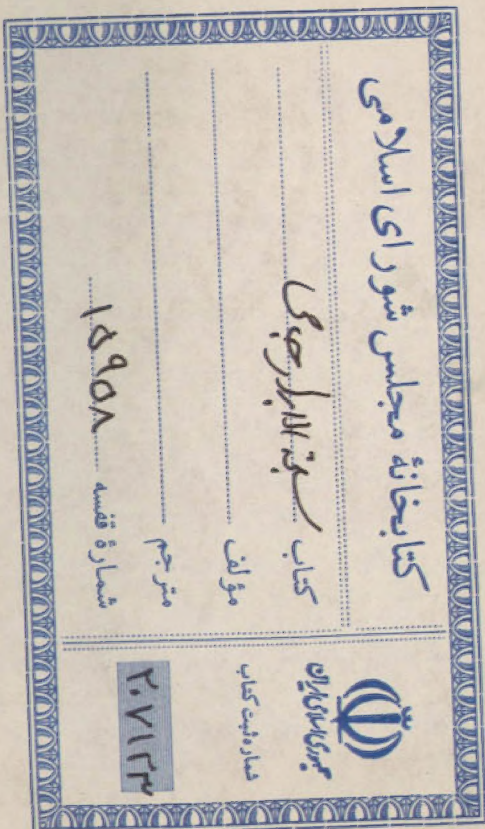 کتابخانهٔ مجلس شورای اسلامی
کتاب سبحة الابرار جامی
مؤلف
مترجم
شمارهٔ قفسه ۱۵۹۵۸
جمهوری اسلامی ایران
شماره ثبت کتاب
۲۰۷۱۳۳